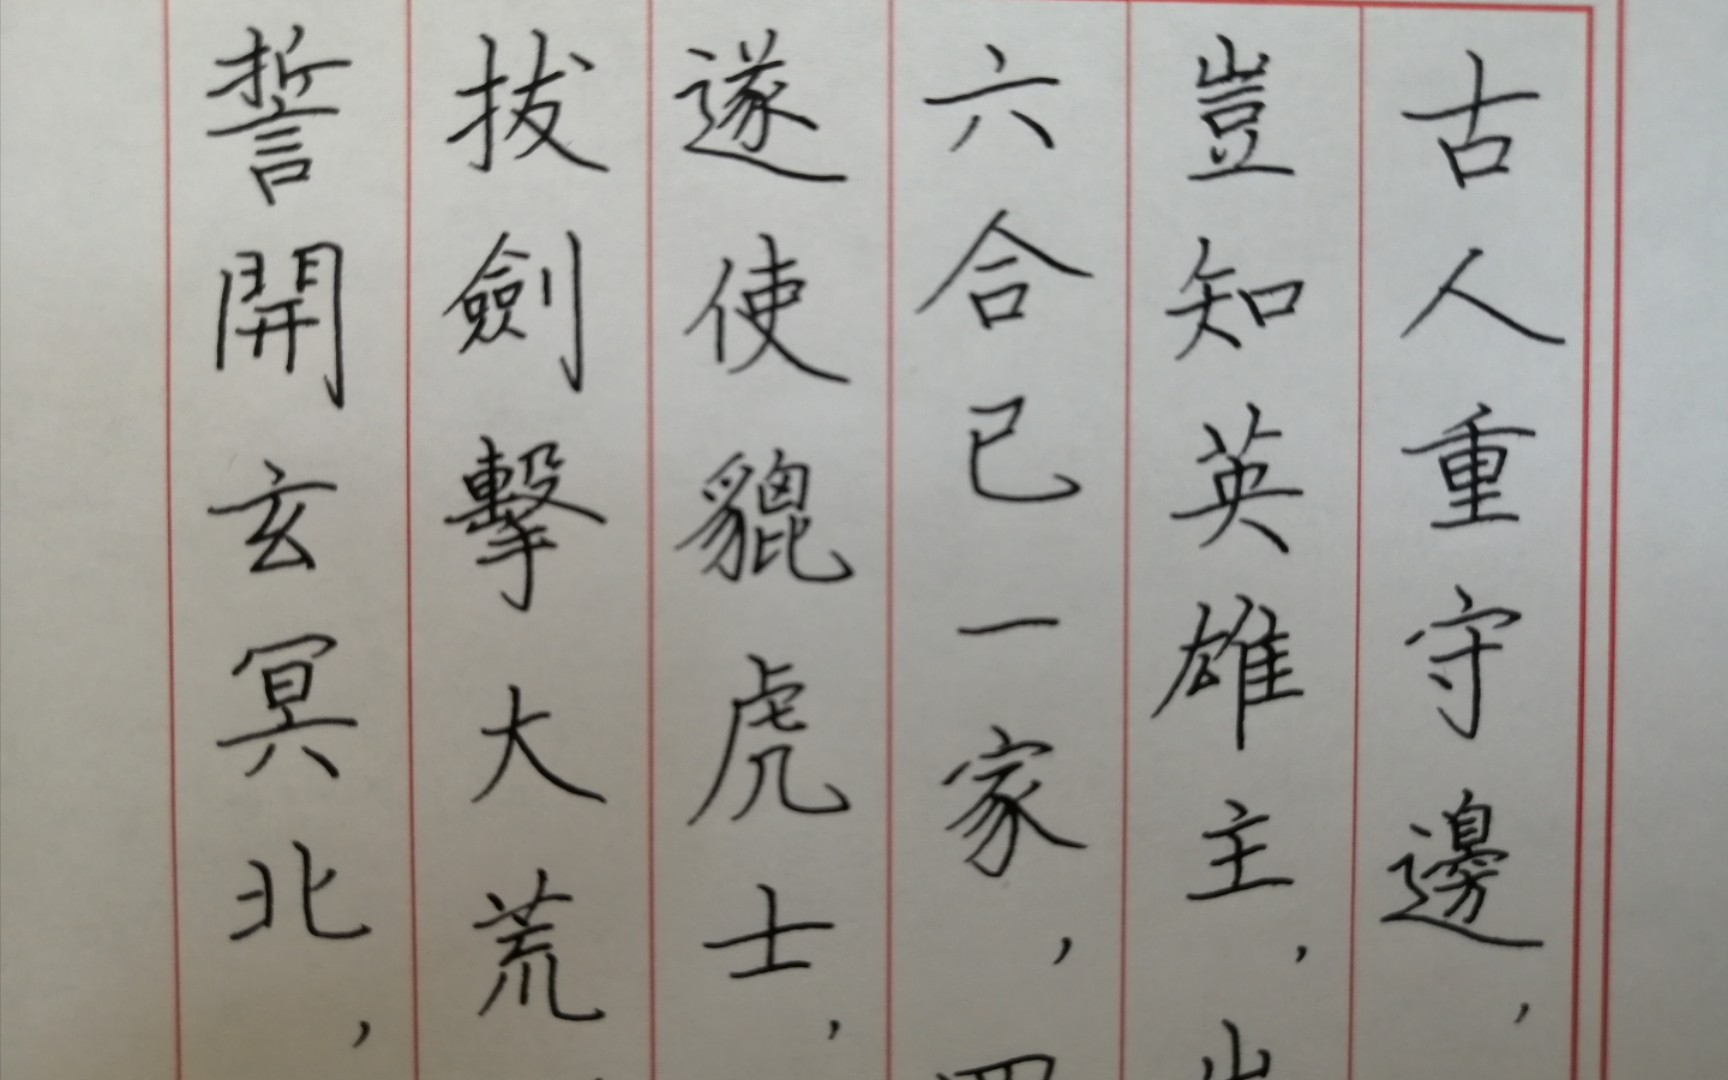 古人重守邊，
豈知英雄主，
六合已一家，
遂使貔虎士，
拔劍擊大荒
誓開玄冥北，